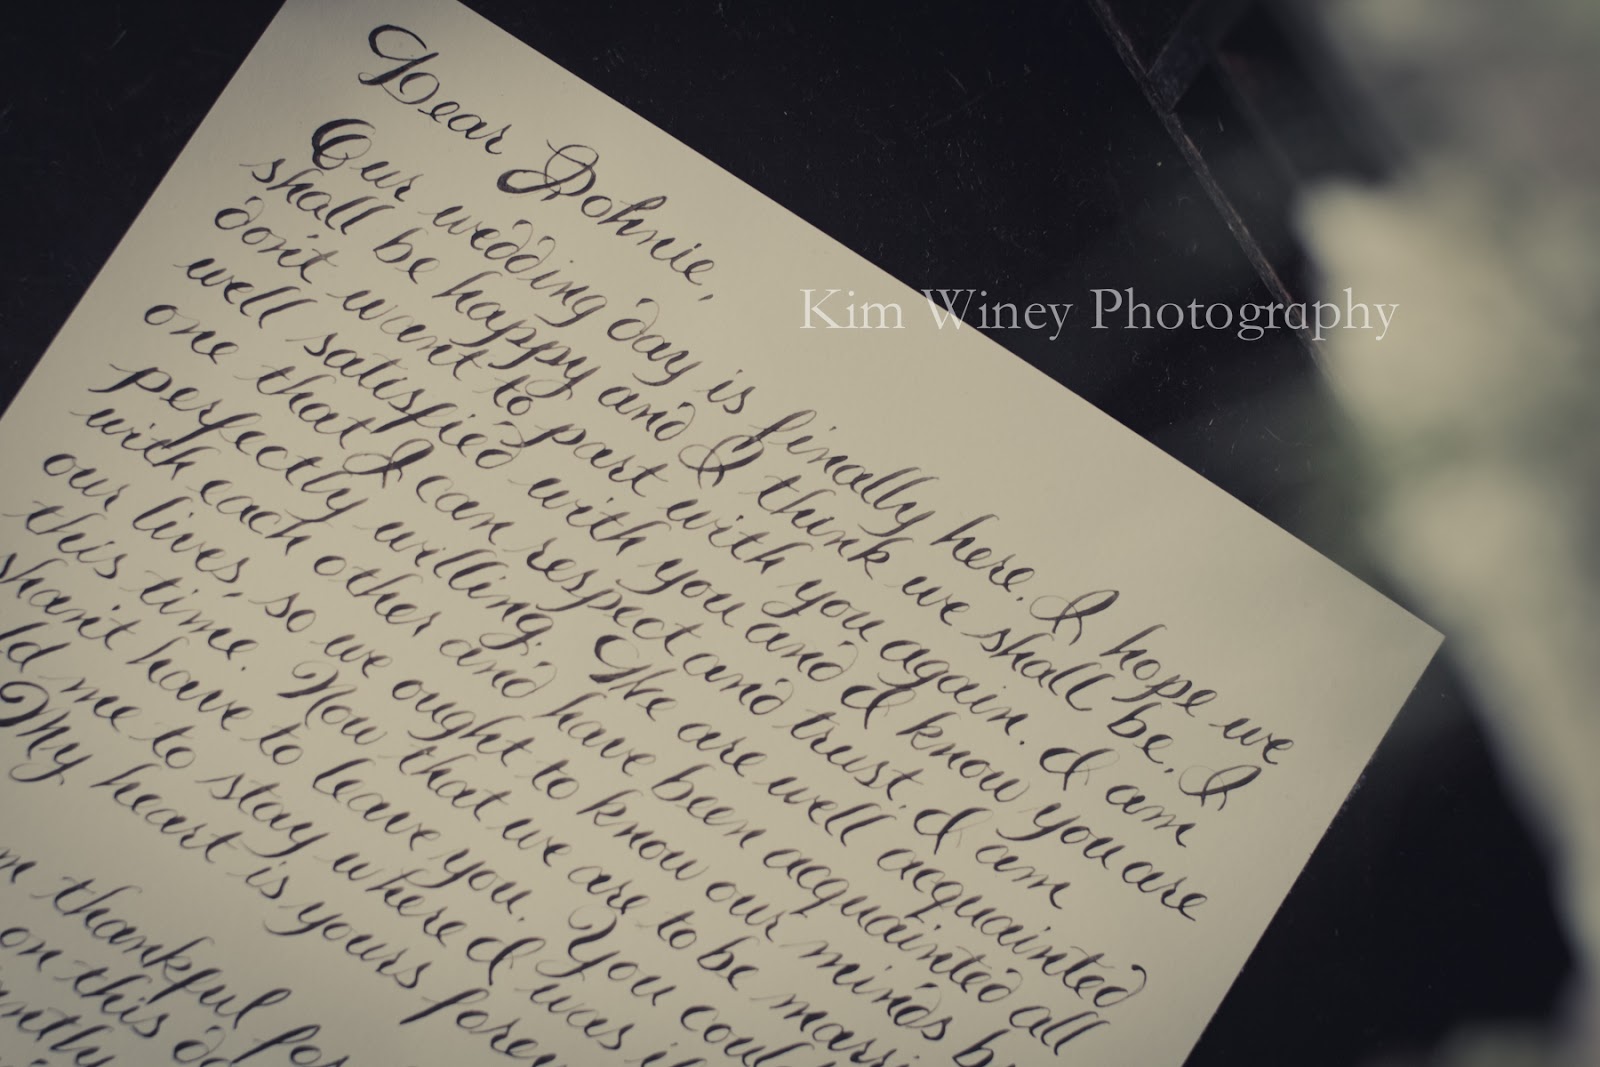 Dear Johnie,
Our wedding day is finally here. I hope we
shall be happy and I think we shall be. I
don't want to part with you again. I am
well satisfied with you and I know you are
one that I can respect and trust. I am
perfectly willing. We are well acquainted
with each other and have been acquainted all
our lives, so we ought to know our minds
this time. Now that we are to be marri
shan't have to leave you. You coul
ld me to stay where I was
My heart is yours forev
thankful for
on this
Kim Winey Photography